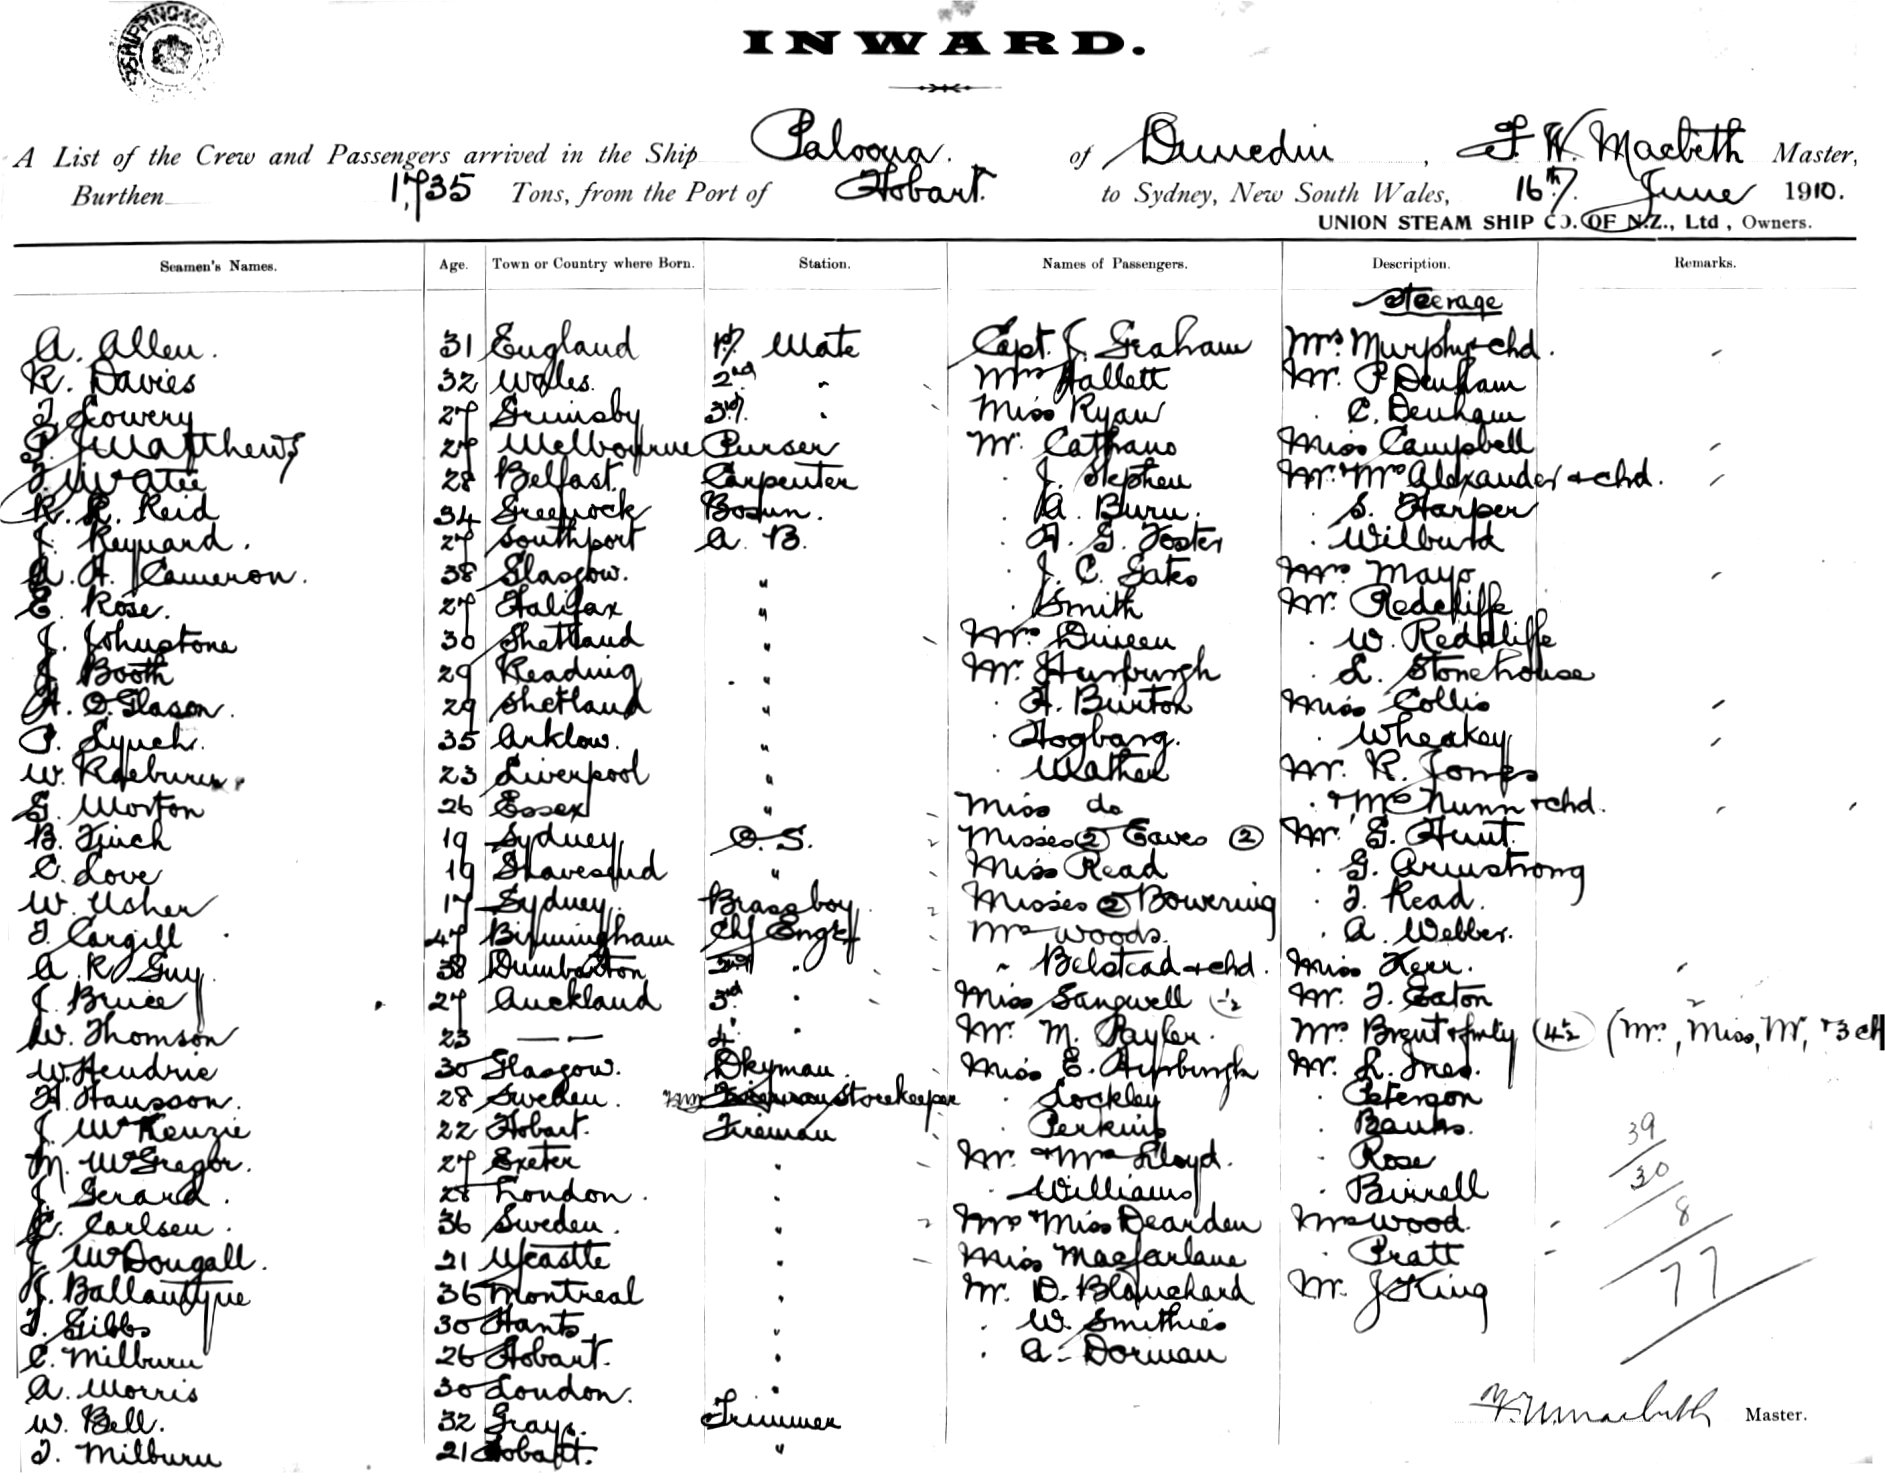 SHIPPING MAST
INWARD.
A List of the Crew and Passengers arrived in the Ship Paloona. of Dunedin, F. W. Macbeth Master,
Burthen 1,735 Tons, from the Port of Hobart. to Sydney, New South Wales, 16th June 1910.
UNION STEAM SHIP CO. OF N.Z., Ltd, Owners.
Seamen's Names. Age. Town or Country where Born. Station. Names of Passengers. Description. Remarks.
Steerage
A. Allen. 31 England 1st Mate Capt. J. Graham Mrs Murphy + chd.
R. Davies 32 Wales. 2nd " Mrs Hallett Mr. P. Denham
J. Lowery 27 Grimsby 3rd. " Miss Ryan " C. Denham
P. J Matthews 27 Melbourne Purser Mr. Cathano Miss Campbell
J. McAtee 28 Belfast. Carpenter " J. Stephen Mr. + Mrs Alexander + chd.
R. R. Reid 34 Greenock Bosun. " A. Burn. " S. Harper
J. Reynard. 27 Southport A. B. " H. G. Foster " Wilburd
A. H. Cameron. 38 Glasgow. " " J. C. Gates Mrs Mayo
E. Rose. 27 Halifax " " Smith Mr. Redcliffe
J. Johnstone 30 Shetland " Mrs Dineen " W. Redcliffe
J. Booth 29 Reading " Mr. Hursburgh " L. Stonehouse
H. O. Glason. 29 Shetland " " H. Burton Miss Collis
P. Lynch. 35 Arklow. " " Hogbarg. " Wheakey
W. Raeburn 23 Liverpool " " Mather Mr. R. Jones
G. Morton 26 Essex " Miss do " + Mrs Nunn + chd.
B. Finch 19 Sydney, O. S. Misses (2) Eaves (2) Mr. G. Hunt.
C. Love 19 Gravesend " Miss Read " G. Armstrong
W. Usher 17 Sydney. Brassboy. Misses (2) Bowering " J. Read.
J. Cargill 47 Birmingham Chf Engr Mrs Woods. " A. Webber.
A. R. Guy. 38 Dumbarton 2nd " " Belstead + chd. Miss Kerr.
J. Bruce 27 Auckland 3rd " Miss Sangwell (-½ Mr. J. Eaton
W. Thomson 23 — — 4 " Mr. M. Payler. Mrs Brent + fmly (4½) (Mrs, Miss, Mr, + 3 ch
W. Hendrie 30 Glasgow. Dkyman. Miss E. Hursburgh Mr. L. Ines.
H. Hansson. 28 Sweden. Storekeeper " Lockley " Peterson
J. McKenzie 22 Hobart. Fireman " Perkins " Banks.
M. McGregor. 27 Exeter " Mr. + Mrs Lloyd. " Rose
J. Gerard. 28 London. " " Williams " Birrell
C. Carlsen. 36 Sweden. " Mrs + Miss Dearden Mrs Wood.
J. McDougall. 21 Ncastle " Miss Macfarlane " Pratt
J. Ballantyne 36 Montreal " Mr. D. Blanchard Mr. J King
J. Gibbs 30 Hants " " W. Smithies
C. Milburn 26 Hobart. " " A. Dorman
A. Morris 30 London. "
W. Bell. 32 Grays. Trimmer
J. Milburn 21 Hobart. "
39
30
8
77
F. W. Macbeth Master.